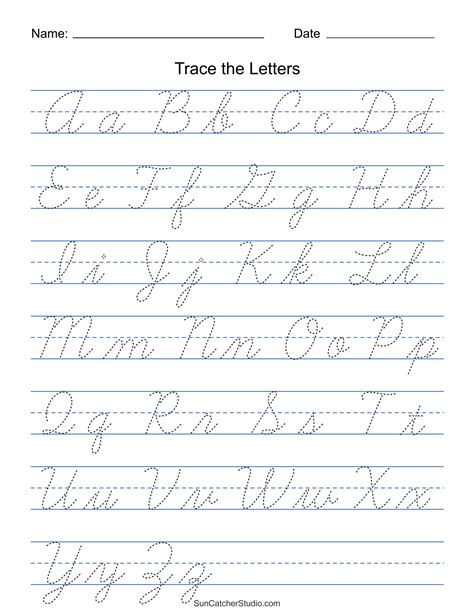 Name: Date
Trace the Letters
Aa Bb Cc Dd
Ee Ff Gg Hh
Ii Jj Kk Ll
Mm Nn Oo Pp
Qq Rr Ss Tt
Uu Vv Ww Xx
Yy Zz
SunCatcherStudio.com